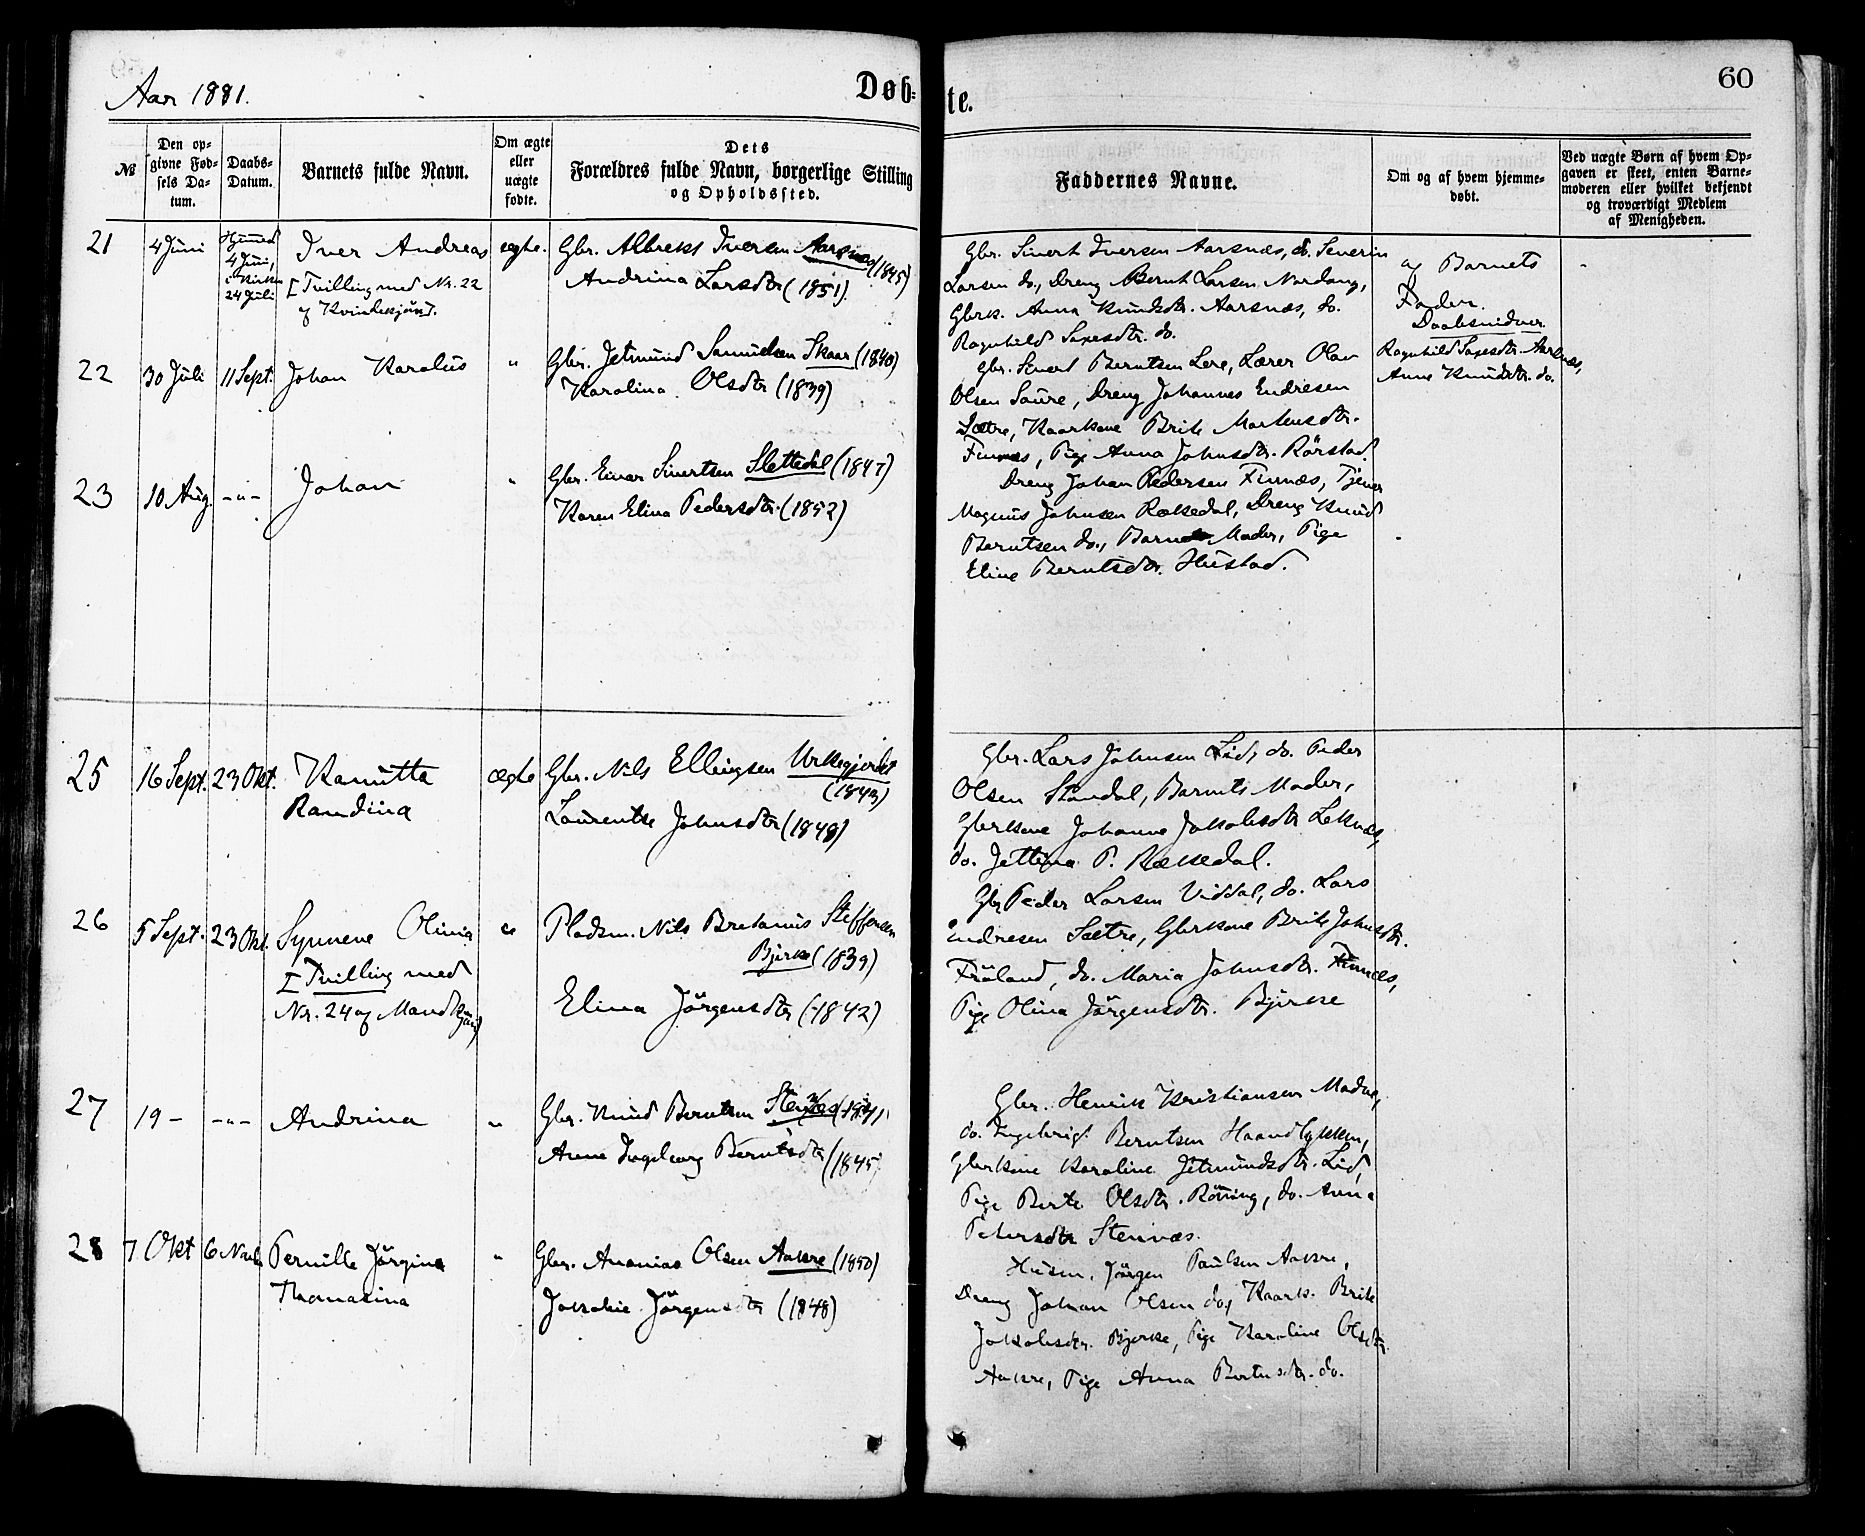 Aar 1881.
Døb-
te.
60
№
Den op-
givne Fød-
sels Da-
tum.
Daabs-
Datum.
Barnets fulde Navn.
Om ægte
eller
uægte
fødte.
Dets
Forældres fulde Navn, borgerlige Stilling
og Opholdssted.
Faddernes Navne.
Om og af hvem hjemme-
døbt.
Ved uægte Børn af hvem Op-
gaven er skeet, enten Barne-
moderen eller hvilket bekjendt
og troværdigt Medlem
af Menigheden.
21
4 Juni
Hjemmed
4 Juni,
i Kirken
24 Juli
Iver Andreas
I Tvilling med Nr. 22
af Kvindekjønd.
ægte.
Gbr. Albrekt Iversen Aarsnæs (1845)
Andrina Larsdtr (1851).
Gbr. Sivert Iversen Aarsnæs, do. Severin
Larsen do, Dreng Bernt Larsen Nordang,
Gbrk. Anna Knudsdtr. Aarsnæs, do.
Ragnhild Saxesdtr. do.
af Barnets
Fader.
Daabsvidner
Ragnhild Saxesdtr. Aarsnæs,
Anne Knudsdtr. do.
22
30 Juli
11 Sept.
Johan Karolus
"
Gbr. Jetmund Samuelsen Skaar (1840)
Karolina Olsdtr (1839)
Gbr. Sivert Berntsen Lere, Lærer Olav
Olsen Saure, Dreng Johannes Endresen
Sætre, Kaarkone Brite Martensdtr.
Finnæs, Pige Anna Johnsdtr. Rörstad.
23
10 Aug.
-"-
Johan
"
Gbr. Einar Sivertsen Slettedal (1847)
Karen Elina Pedersdtr. (1852)
Dreng Johan Pedersen Finnæs, Tjener
Magnus Johnsen Rækedal, Dreng Knud
Berntsen do., Barnets Moder, Pige
Eline Berntsdtr. Hustad.
25
16 Sept.
23 Okt.
Kanutta
Randina
ægte
Gbr. Nils Ellingsen Urkegjerdet
(1843)
Laurentse Johnsdtr (1848)
Gbr. Lars Johnsen Lid, do. Peder
Olsen Standal, Barnets Moder,
Gbrkone Johanne Jakobsdtr Leknæs,
do. Jettina P. Rækedal.
26
5 Sept.
23 Okt.
Synnene Olivia
I Tvilling med
Nr. 24 af Mandkjønd
"
Pladsm. Nils Bretanus Steffensen
Bjerke (1839)
Elina Jörgensdtr (1842)
Gbr Peder Larsen Viddal, do. Lars
Endresen Sætre, Gbrkone Brite Johnsdtr.
Fröland, do. Maria Johnsdtr. Finnæs,
Pige Olina Jörgensdtr. Bjerke
27
19 -
-"-
Andrina
"
Gbr. Knud Berntsen
Anne Ingeborg Berntsdtr (1845)
Gbr. Henrik Kristiansen
do. Ingebrigt Berntsen Haandlykken,
Gbrkone Karoline Jetmundsdtr. Lid
Pige Berte Olsdtr. Rönning, do. Anna
Petersdtr Stennæs.
28
7 Okt
6 Novbr
Pernille Jörgina
Thomasina
"
Gbr. Ananias Olsen Aakre (1850)
Jokobie Jörgensdtr (1848)
Husm. Jörgen Paulsen Aakre,
Dreng Johan Olsen do, Kaark. Brite
Jakobsdtr. Bjerke, Pige Karoline Olsdtr.
Aakre, Pige Anna do.